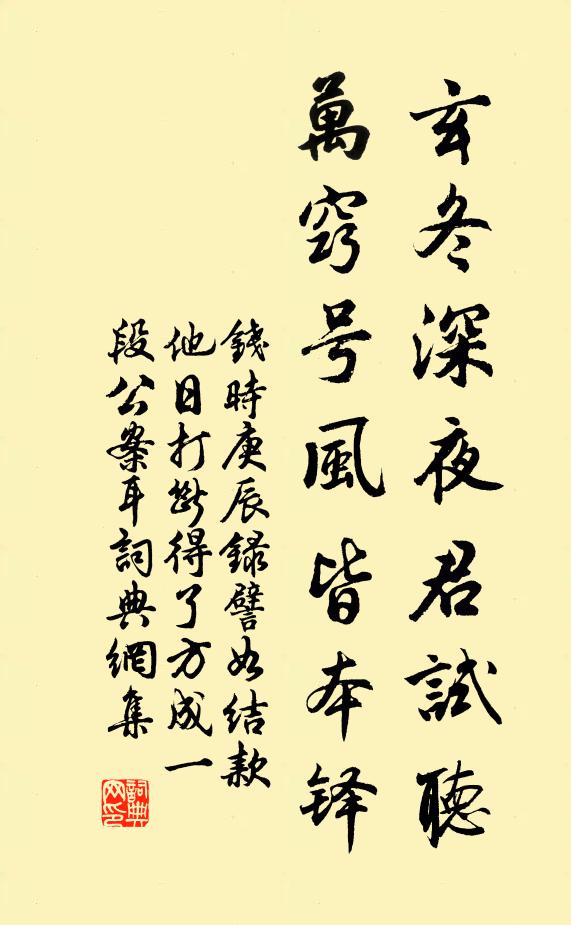 玄冬深夜君試聽
萬竅号風皆本铎
錢時庚辰録譬如結款
他日打斷得了方成一
段公案耳詞典網集
詞典网印